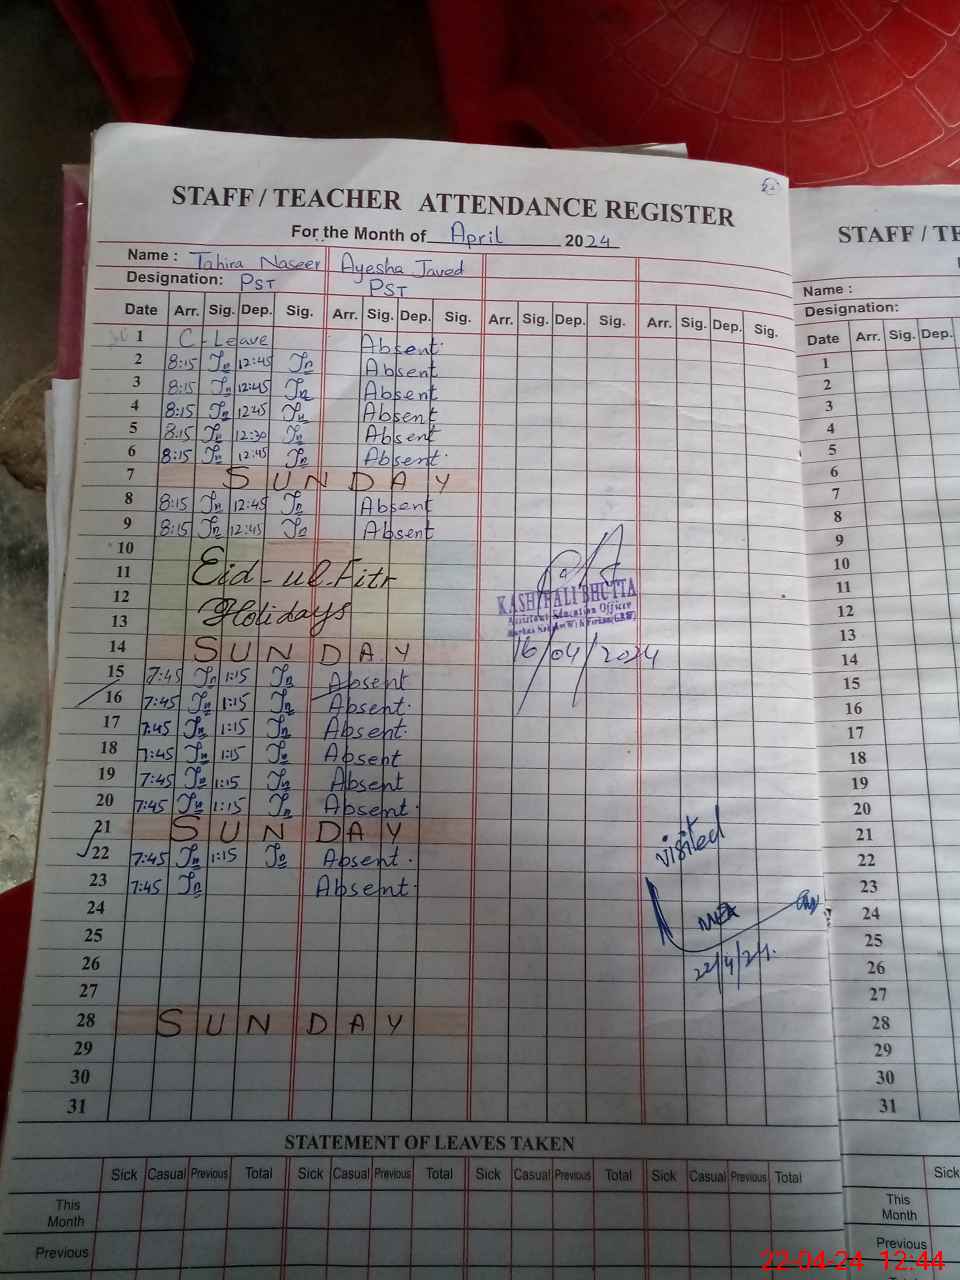 STAFF / TEACHER ATTENDANCE REGISTER
For the Month of April 2024
Name : Tahira Naseer Ayesha Javed
Designation: PST PST
Date Arr. Sig. Dep. Sig. Arr. Sig. Dep. Sig. Arr. Sig. Dep. Sig. Arr. Sig. Dep. Sig.
1 C-Leave Absent.
2 8:15 Tn 12:45 Tn Absent
3 8:15 Tn 12:45 Tn Absent
4 8:15 Tn 12:45 Tn Absent
5 8:15 Tn 12:30 Tn Absent
6 8:15 Tn 12:45 Tn Absent.
7 SUNDAY
8 8:15 Tn 12:45 Tn Absent
9 8:15 Tn 12:45 Tn Absent
10
11 Eid-ul-Fitr
12
13 Holidays
14 SUNDAY
15 7:45 Tn 1:15 Tn Absent
16 7:45 Tn 1:15 Tn Absent.
17 7:45 Tn 1:15 Tn Absent.
18 7:45 Tn 1:15 Tn Absent
19 7:45 Tn 1:15 Tn Absent
20 7:45 Tn 1:15 Tn Absent.
21 SUNDAY
22 7:45 Tn 1:15 Tn Absent.
23 7:45 Tn Absent.
24
25
26
27
28 SUNDAY
29
30
31
KASHIF ALI BHUTTA
Assistant Education Officer
16/04/2024
visited
MEA
22/4/24.
STATEMENT OF LEAVES TAKEN
Sick Casual Previous Total Sick Casual Previous Total Sick Casual Previous Total Sick Casual Previous Total
This Month
Previous
STAFF / TE
Name :
Designation:
Date Arr. Sig. Dep.
1
2
3
4
5
6
7
8
9
10
11
12
13
14
15
16
17
18
19
20
21
22
23
24
25
26
27
28
29
30
31
Sick
This Month
Previous
22-04-24 12:44